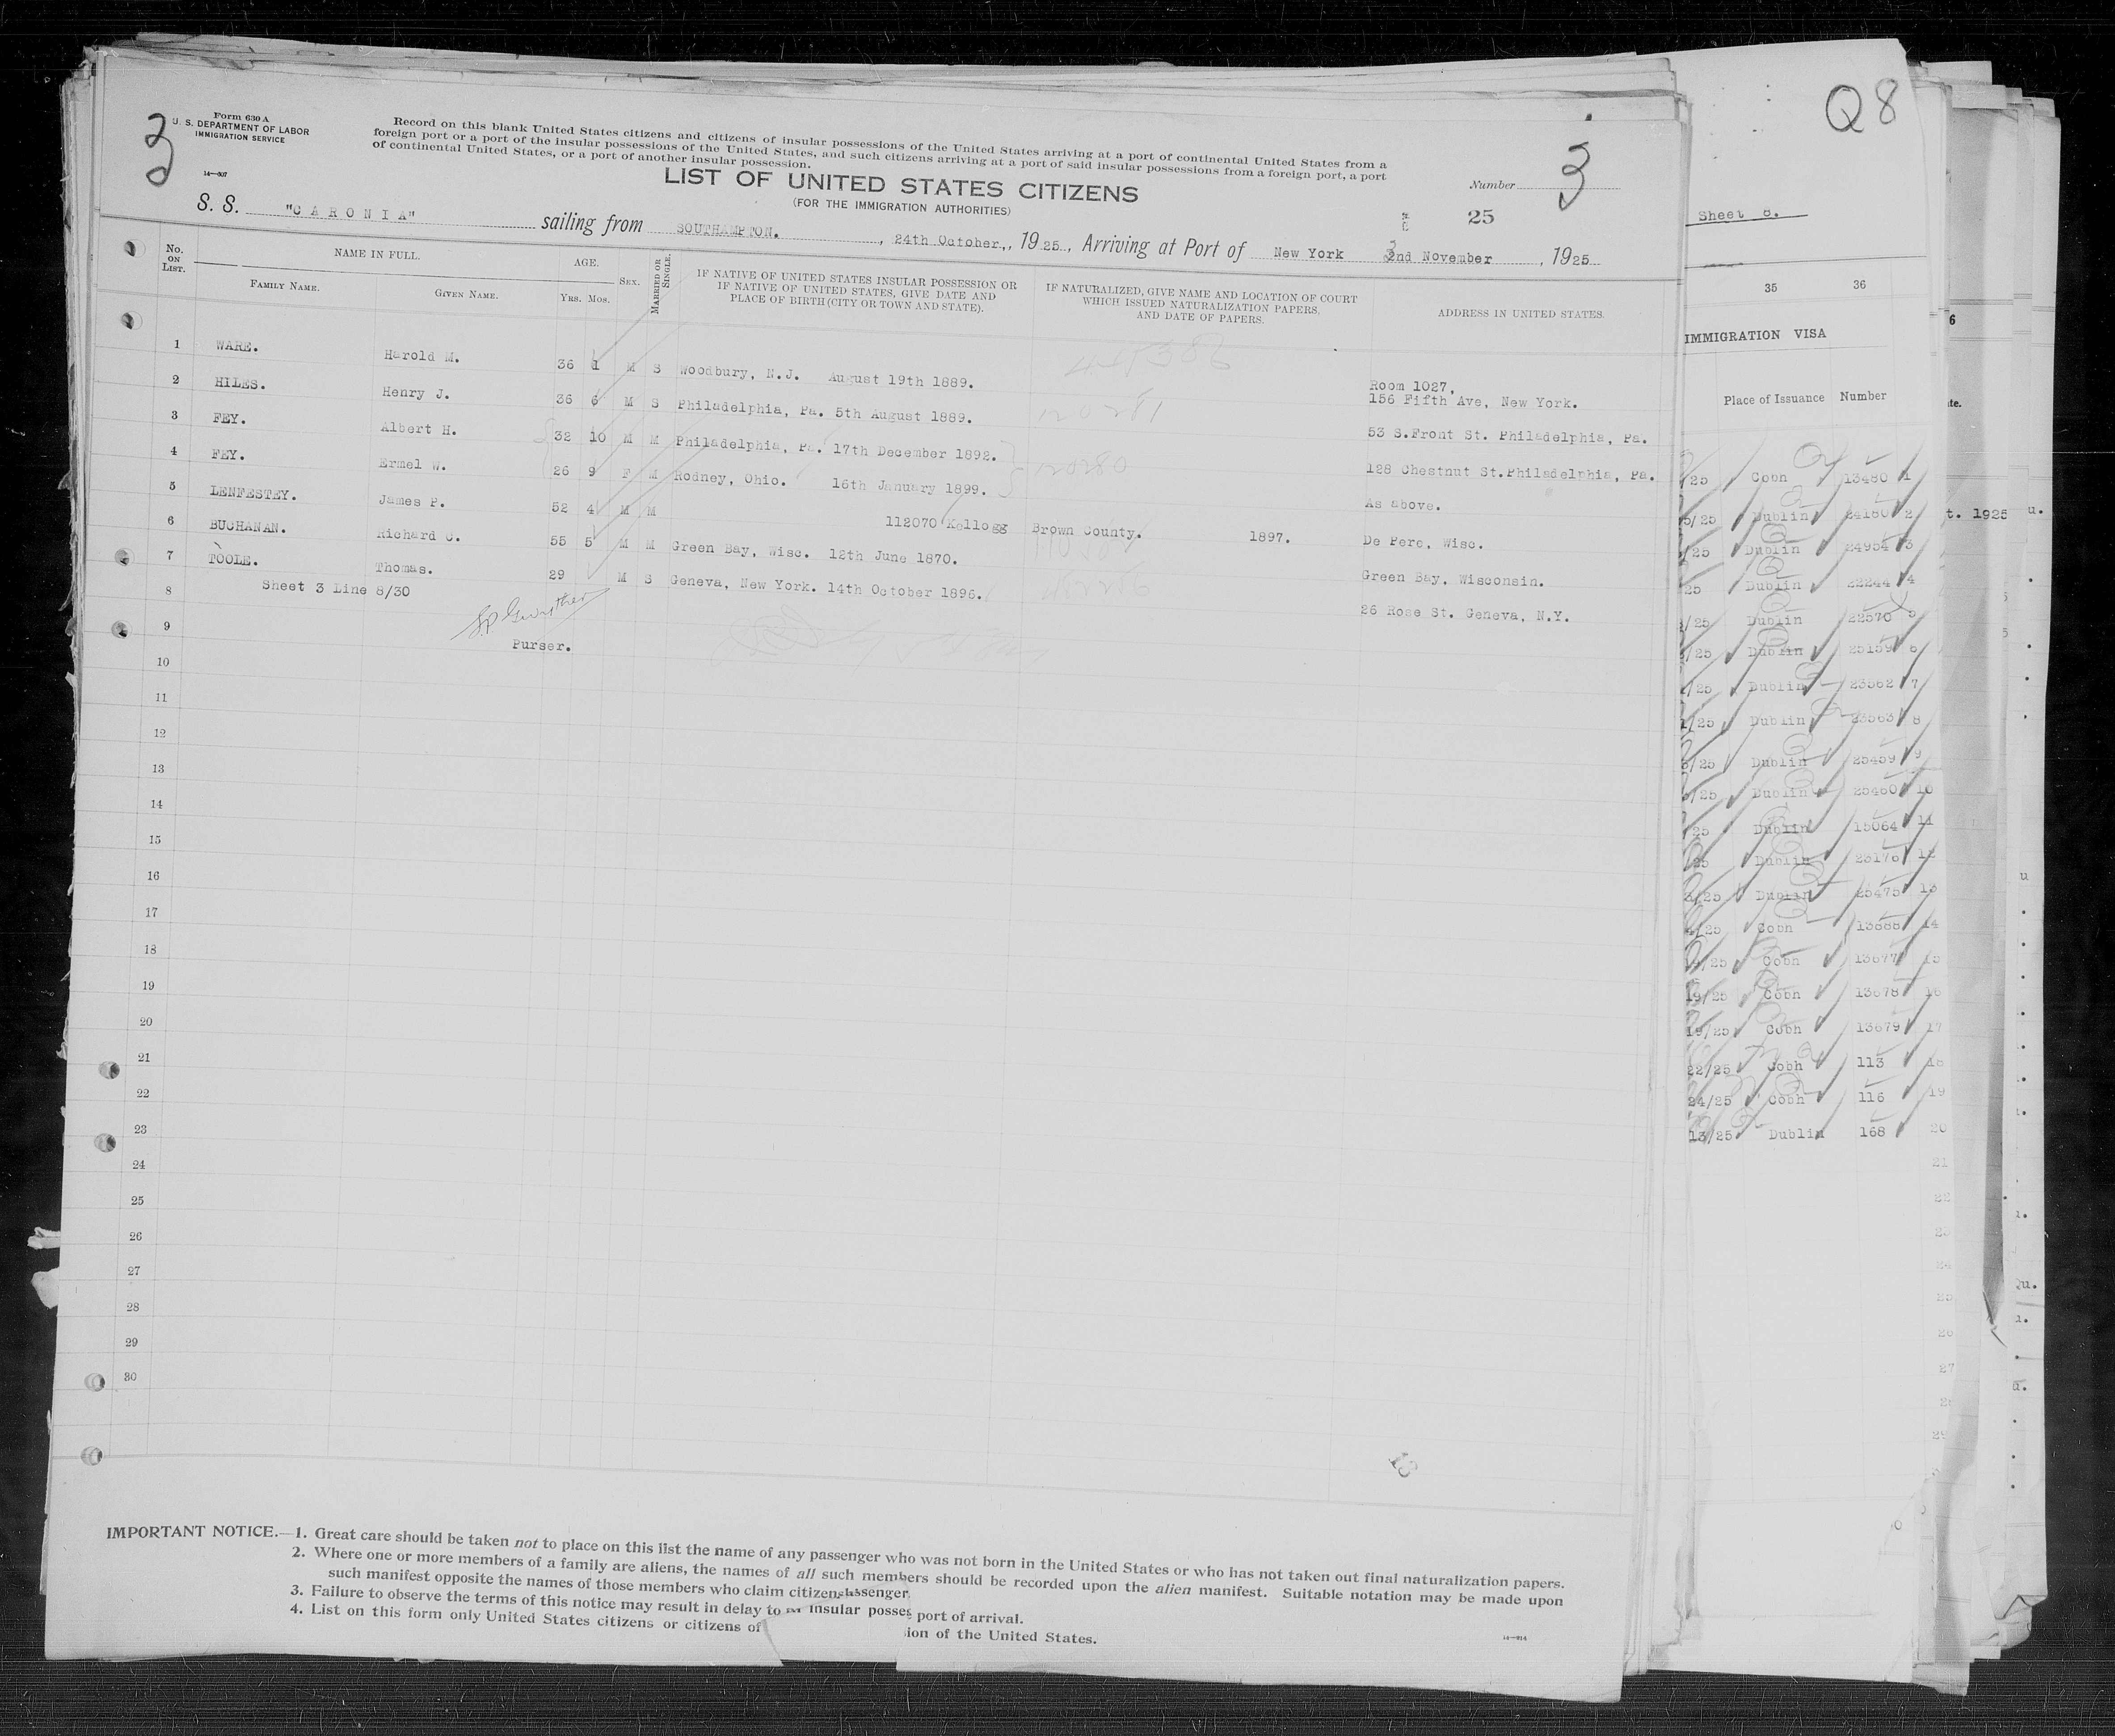 Q8
3
Form 630 A
U. S. DEPARTMENT OF LABOR
IMMIGRATION SERVICE
14—607
Record on this blank United States citizens and citizens of insular possessions of the United States arriving at a port of continental United States from a
foreign port or a port of the insular possessions of the United States, and such citizens arriving at a port of said insular possessions from a foreign port, a port
of continental United States, or a port of another insular possession.
LIST OF UNITED STATES CITIZENS
(FOR THE IMMIGRATION AUTHORITIES)
Number 3
25
S. S. "CARONIA" sailing from SOUTHAMPTON., 24th October., 1925., Arriving at Port of New York 2nd November, 1925
No. ON LIST.
NAME IN FULL.
FAMILY NAME.
GIVEN NAME.
AGE.
YRS. MOS.
SEX.
MARRIED OR SINGLE.
IF NATIVE OF UNITED STATES INSULAR POSSESSION OR
IF NATIVE OF UNITED STATES, GIVE DATE AND
PLACE OF BIRTH (CITY OR TOWN AND STATE).
IF NATURALIZED, GIVE NAME AND LOCATION OF COURT
WHICH ISSUED NATURALIZATION PAPERS,
AND DATE OF PAPERS.
ADDRESS IN UNITED STATES.
1 WARE. Harold M. 36 1 M S Woodbury, N.J. August 19th 1889. Room 1027,
156 Fifth Ave, New York.
2 HILES. Henry J. 36 6 M S Philadelphia, Pa. 5th August 1889. 120281 53 S.Front St. Philadelphia, Pa.
3 FEY. Albert H. 32 10 M M Philadelphia, Pa. 17th December 1892. 128 Chestnut St.Philadelphia, Pa.
4 FEY. Ermel W. 26 9 F M Rodney, Ohio. 16th January 1899. 120280 As above.
5 LENFESTEY. James P. 52 4 M M 112070 Kellogg Brown County. 1897. De Pere, Wisc.
6 BUCHANAN. Richard C. 55 5 M M Green Bay, Wisc. 12th June 1870. Green Bay, Wisconsin.
7 TOOLE. Thomas. 29 M S Geneva, New York. 14th October 1896. 26 Rose St. Geneva, N.Y.
8 Sheet 3 Line 8/30
9
Purser.
10
11
12
13
14
15
16
17
18
19
20
21
22
23
24
25
26
27
28
29
30
13
IMPORTANT NOTICE.—1. Great care should be taken not to place on this list the name of any passenger who was not born in the United States or who has not taken out final naturalization papers.
2. Where one or more members of a family are aliens, the names of all such members should be recorded upon the alien manifest. Suitable notation may be made upon
such manifest opposite the names of those members who claim citizens
3. Failure to observe the terms of this notice may result in delay to port of arrival.
4. List on this form only United States citizens or citizens of ion of the United States.
assenger
insular posses
14—614
Sheet 8.
35 36
IMMIGRATION VISA
Place of Issuance Number
25 Cobh 13480 1
5/25 Dublin 24180 2
/25 Dublin 24954 3
25 Dublin 22244 4
/25 Dublin 22570 5
/25 Dublin 25159 6
/25 Dublin 23562 7
/25 Dublin 23563 8
/25 Dublin 25459 9
/25 Dublin 25460 10
25 Dublin 15064 11
25 Dublin 23176 12
/25 Dublin 25475 13
/25 Cobh 13888 14
/25 Cobh 13677 15
19/25 Cobh 13678 16
19/25 Cobh 13679 17
22/25 Cobh 113 18
24/25 Cobh 116 19
13/25 Dublin 168 20
21
22
6
te.
t. 1925
u.